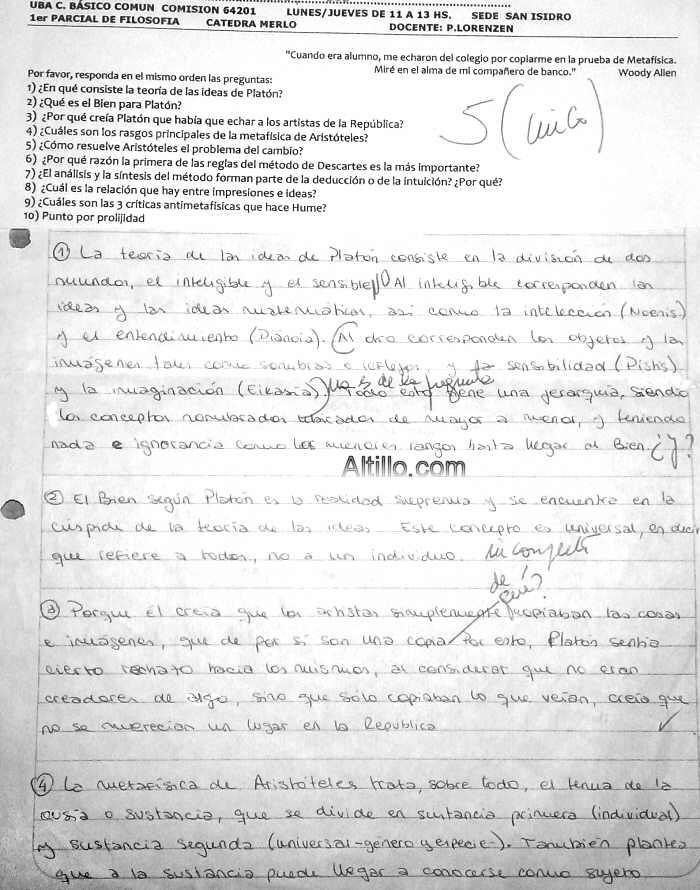 UBA C. BÁSICO COMUN COMISION 64201 LUNES/JUEVES DE 11 A 13 HS. SEDE SAN ISIDRO
1er PARCIAL DE FILOSOFIA CATEDRA MERLO DOCENTE: P.LORENZEN
"Cuando era alumno, me echaron del colegio por copiarme en la prueba de Metafísica.
Miré en el alma de mi compañero de banco." Woody Allen
Por favor, responda en el mismo orden las preguntas:
1) ¿En qué consiste la teoría de las ideas de Platón?
2) ¿Qué es el Bien para Platón?
3) ¿Por qué creía Platón que había que echar a los artistas de la República?
4) ¿Cuáles son los rasgos principales de la metafísica de Aristóteles?
5) ¿Cómo resuelve Aristóteles el problema del cambio?
6) ¿Por qué razón la primera de las reglas del método de Descartes es la más importante?
7) ¿El análisis y la síntesis del método forman parte de la deducción o de la intuición? ¿Por qué?
8) ¿Cuál es la relación que hay entre impresiones e ideas?
9) ¿Cuáles son las 3 críticas antimetafísicas que hace Hume?
10) Punto por prolijidad
5 (cinco)
① La teoría de las ideas de Platón consiste en la división de dos
mundos, el inteligible y el sensible. Al inteligible corresponden las
ideas y las ideas matemáticas, así como la intelección (Noesis)
y el entendimiento (Dianoia). Al otro corresponden los objetos y las
imágenes tales como sombras o reflejos, y la sensibilidad (Pistis)
y la imaginación (Eikasia). Todo esto tiene una jerarquía, siendo
no es de la pregunta
los conceptos nombrados ubicados de mayor a menor, y teniendo
nada e ignorancia como los menores rangos hasta llegar al Bien. ¿y?
Altillo.com
② El Bien según Platón es la realidad suprema y se encuentra en la
cúspide de la teoría de las ideas. Este concepto es universal, es decir
que refiere a todos, no a un individuo. incompleto
de qué?
③ Porque él creía que los artistas simplemente copiaban las cosas
e imágenes, que de por sí son una copia. Por esto, Platón sentía
cierto rechazo hacia los mismos, al considerar que no eran
creadores de algo, sino que sólo copiaban lo que veían, creía que
no se merecían un lugar en la República
④ La metafísica de Aristóteles trata, sobre todo, el tema de la
ousía o sustancia, que se divide en sustancia primera (individual)
y sustancia segunda (universal-género y especie). También plantea
que a la sustancia puede llegar a conocerse como sujeto